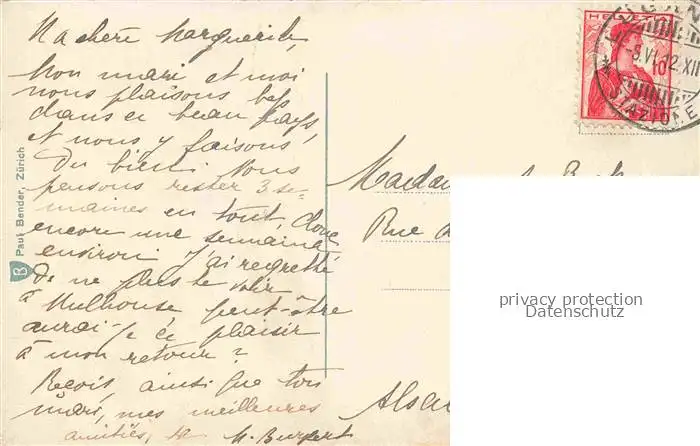 Ma chère Marguerite,
Mon mari et moi
nous plaisons bcp
dans ce beau pays,
et nous y faisons,
du bien. Nous
pensons rester 3 se-
maines en tout, donc
encore une semaine
environ. J'ai regretté
de ne plus te voir
à Mulhouse peut-être
aurai-je ce plaisir
à mon retour?
Reçois, ainsi que ton
mari, mes meilleures
amitiés, ta M. Burgert
Paul Bender, Zürich
B
HELVETIA
10
-8.VI.12.XII
STAZIONE
Madame
Rue
Alsa
privacy protection
Datenschutz